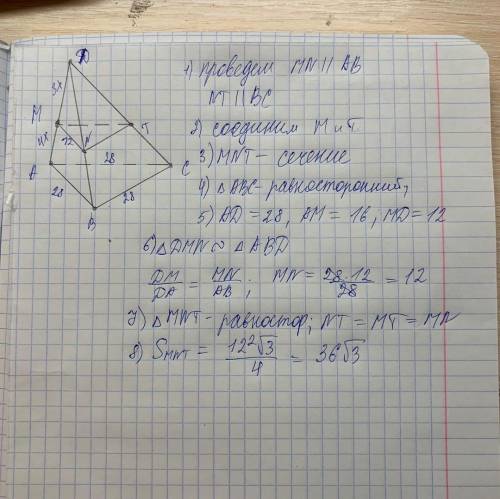 D
3x
M
4x
12
N
T
28
A
C
28
28
B
1) проведем MN || AB
NT || BC
2) соединим M и T
3) MNT - сечение
4) △ABC - равносторонний;
5) AD = 28, AM = 16, MD = 12
6) △DMN ∾ △ABD
DM/DA = MN/AB ; MN = 28·12/28 = 12
7) △MNT - равностор; NT = MT = MN
8) S_MNT = 12²√3/4 = 36√3